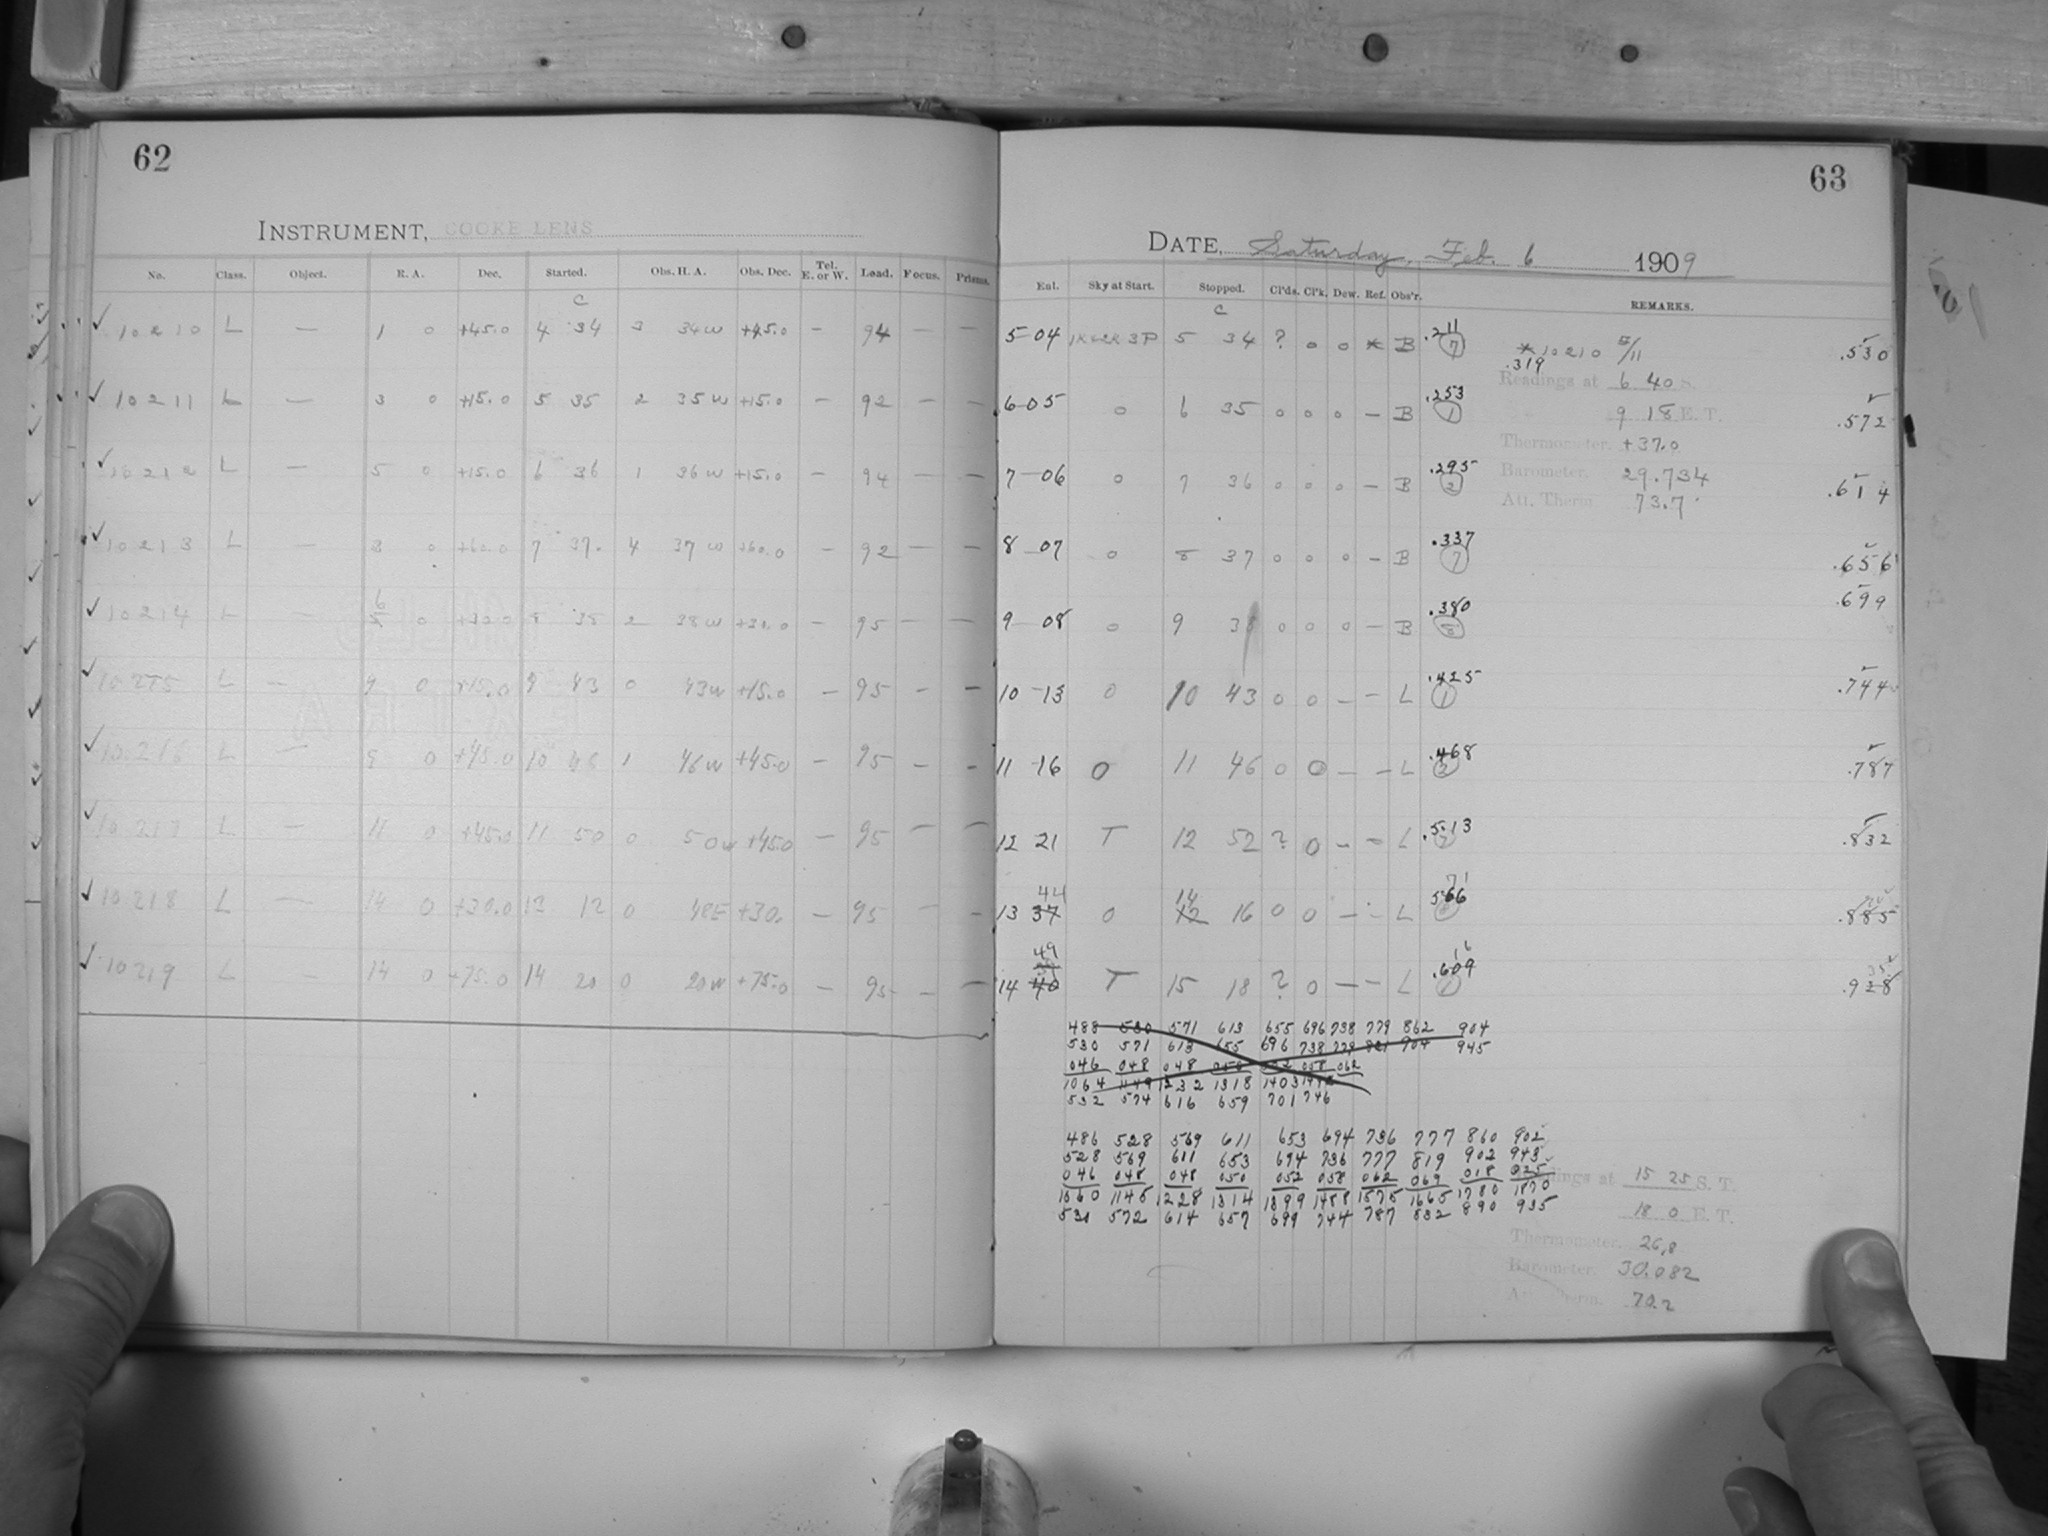 62
INSTRUMENT, COOKE LENS
No. Class. Object. R. A. Dec. Started. Obs. H. A. Obs. Dec. Tel. E. or W. Load. Focus. Prisms.
C
✓ 10210 L — 1 0 +45.0 4 34 3 34W +45.0 — 94 — —
✓ 10211 L — 3 0 +15.0 5 35 2 35W +15.0 — 92 — —
✓ 10212 L — 5 0 +15.0 6 36 1 36W +15.0 — 94 — —
✓ 10213 L — 3 0 +60.0 7 37 4 37W +60.0 — 92 — —
6
✓ 10214 L — 0 +30.0 8 38 2 38W +30.0 — 95 — —
✓ 10215 L — 9 0 +15.0 9 43 0 43W +15.0 — 95 — —
✓ 10216 L — 9 0 +45.0 10 46 1 46W +45.0 — 95 — —
✓ 10217 L — 11 0 +45.0 11 50 0 50W +45.0 — 95 — —
✓ 10218 L — 14 0 +30.0 12 0 48E +30. — 95 — —
✓ 10219 L — 14 0 +75.0 14 20 0 20W +75.0 — 95 — —
63
DATE, Saturday, Feb. 6 1909
Ent. Sky at Start. Stopped. Cl'ds. Cl'k. Dew. Ref. Obs'r. REMARKS.
C
5-04 3P 5 34 ? 0 0 * B .211 7 * 10210 .530
.319
Readings at 6 40 S.
6-05 0 6 35 0 0 0 — B .253 1 9 18 E. T. .572
Thermometer. +37.0
7-06 0 7 36 0 0 0 — B .295 2 Barometer. 29.734 .614
Att. Therm. 73.7
8 07 0 8 37 0 0 0 — B .337 7 .656
9 08 0 9 38 0 0 0 — B .380 .699
10-13 0 10 43 0 0 — — L .425 1 .744
11-16 0 11 46 0 0 — — L .468 2 .787
12 21 T 12 52 ? 0 — — L .513 .832
44 14 71
13 37 0 12 16 0 0 — — L 566 .885
49
14 40 T 15 18 ? 0 — — L .609 .928
488 530 571 613 655 696 738 779 862 904
530 571 613 655 696 738 779 821 904 945
046 048 048 050 052 058 062
1064 1149 1232 1318 1403
532 574 616 659 701 746
486 528 569 611 653 694 736 777 860 902
528 569 611 653 694 736 777 819 902 943
046 048 048 050 052 058 062 069 018 025
1060 1145 1228 1314 1399 1488 1575 1665 1780 1870
530 572 614 657 699 744 787 832 890 935
Readings at 15 25 S. T.
18 0 E. T.
Thermometer. 26.8
Barometer. 30.082
Att. Therm. 70.2